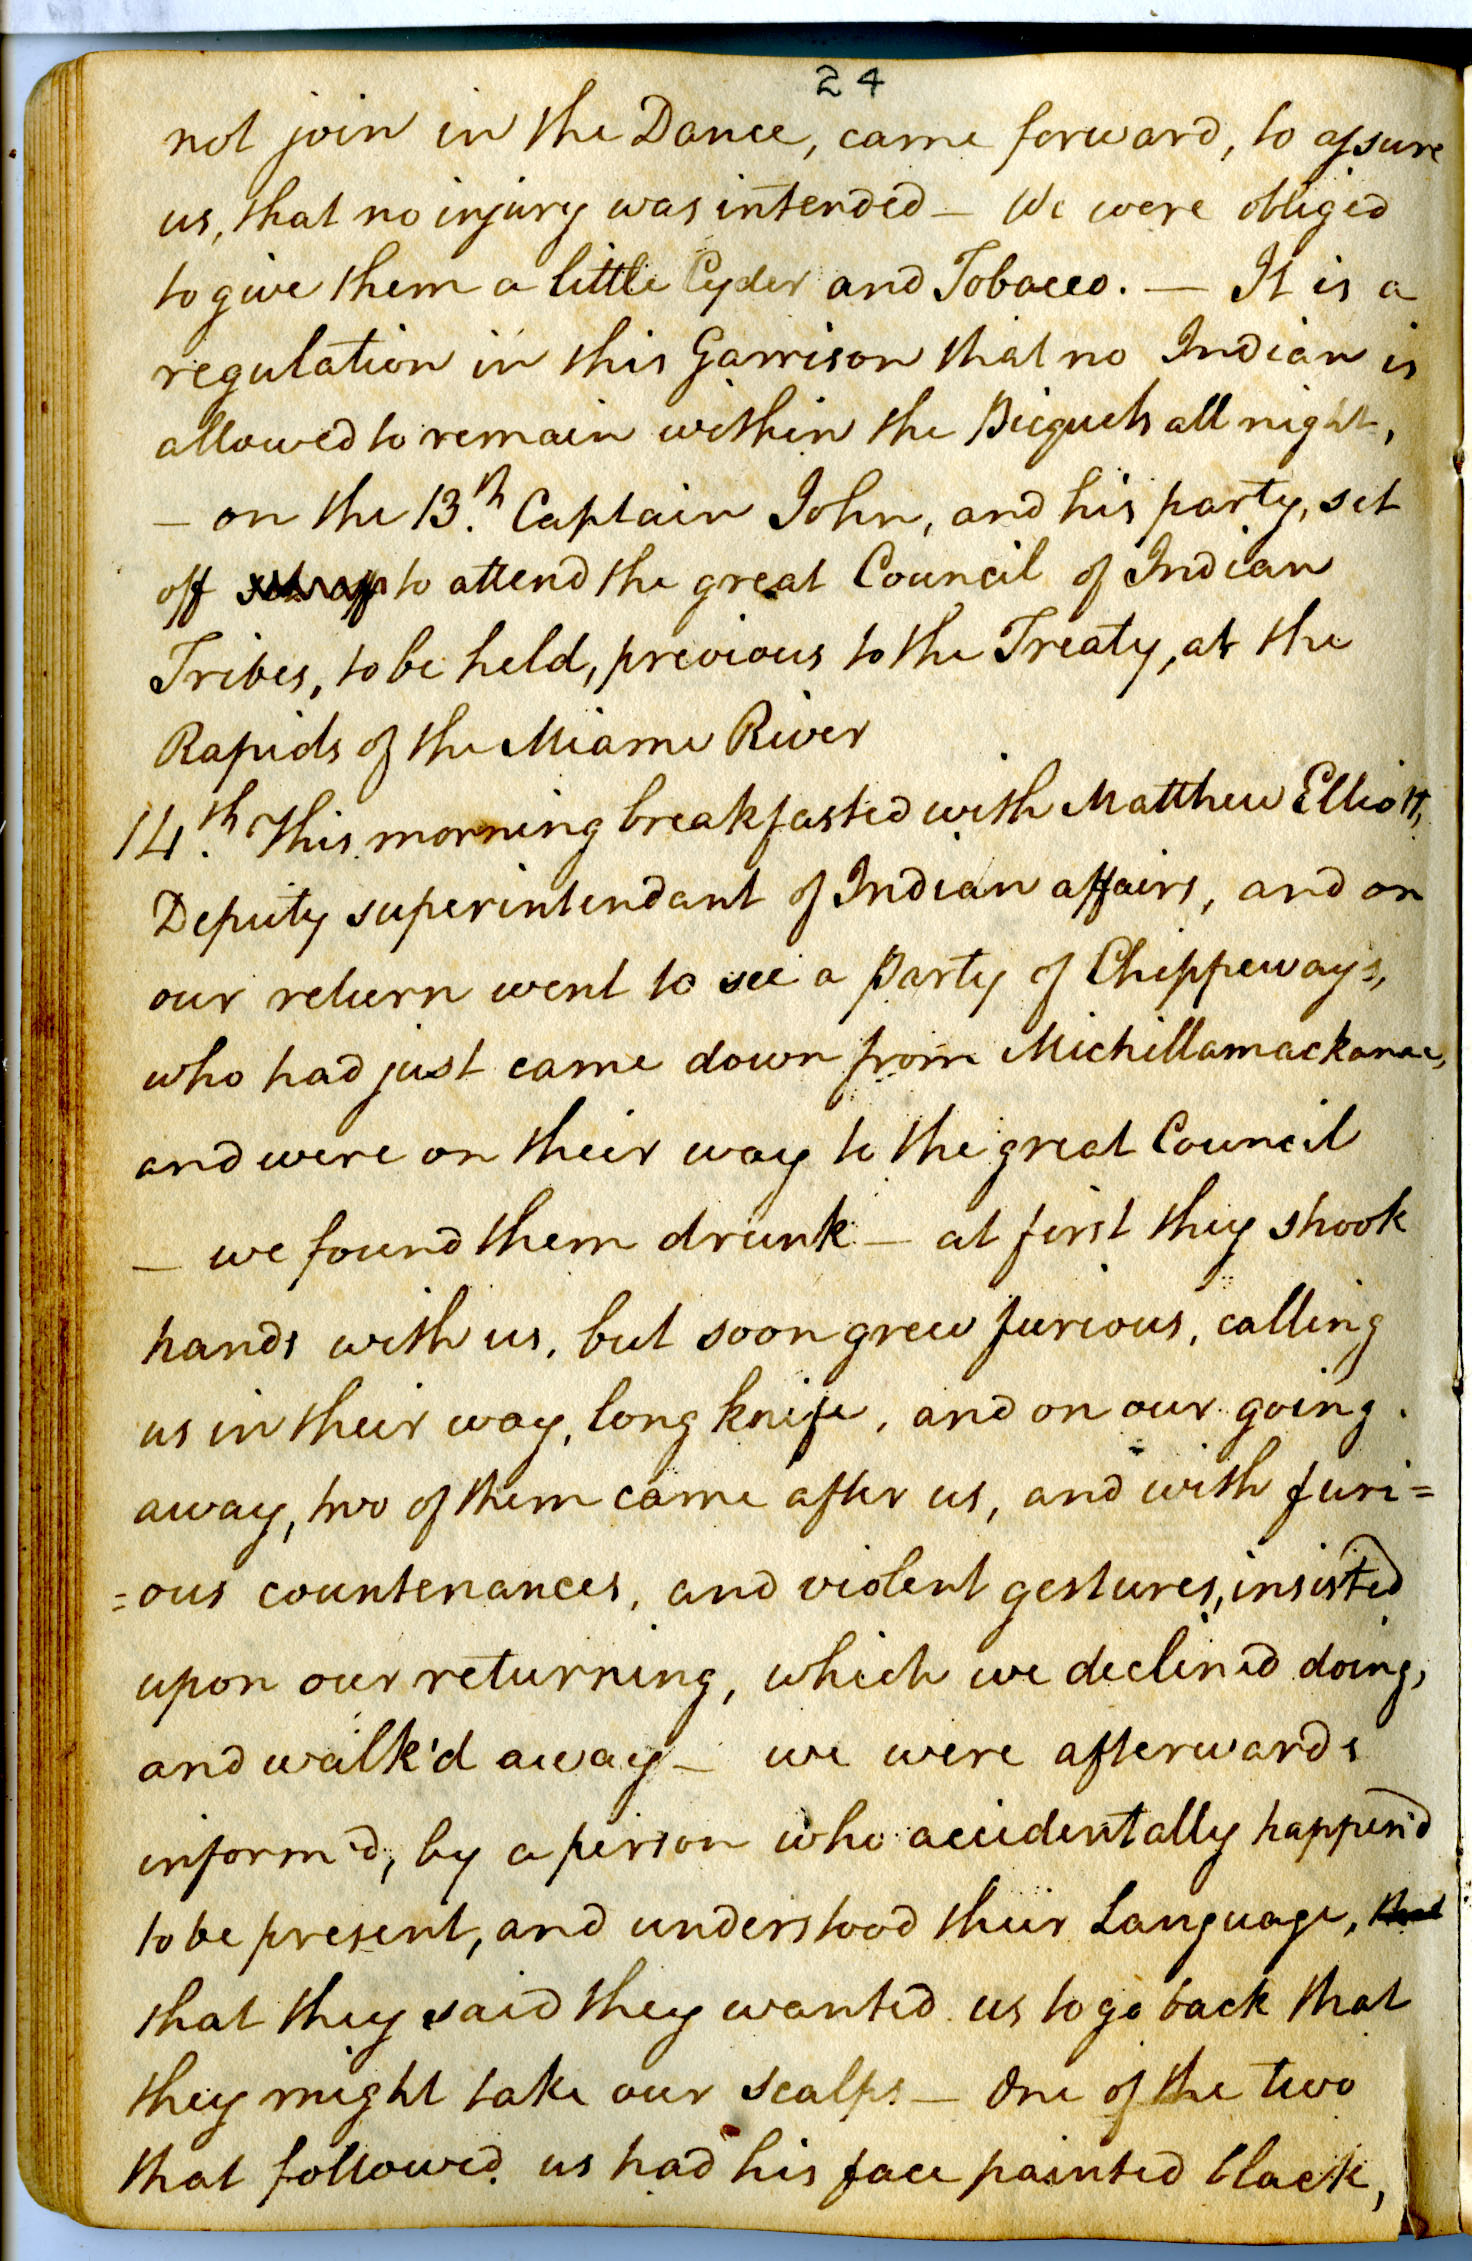 24
not join in the Dance, came forward, to assure
us, that no injury was intended — We were obliged
to give them a little Cyder and Tobacco. — It is a
regulation in this Garrison that no Indian is
allowed to remain within the Picquets all night,
— on the 13.th Captain John, and his party, set
off to attend the great Council of Indian
Tribes, to be held, previous to the Treaty, at the
Rapids of the Miame River
14.th This morning breakfasted with Matthew Elliott,
Deputy superintendant of Indian affairs, and on
our return went to see a Party of Chippeways,
who had just came down from Michillamackanac,
and were on their way to the great Council
— we found them drunk — at first they shook
hands with us, but soon grew furious, calling
us in their way, long knife, and on our going
away, two of them came after us, and with furi=
=ous countenances, and violent gestures, insisted
upon our returning, which we declined doing,
and walk'd away — we were afterwards
inform'd, by a person who accidentally happen'd
to be present, and understood their Language, that
that they said they wanted us to go back that
they might take our scalps — One of the two
that followed us had his face painted black,